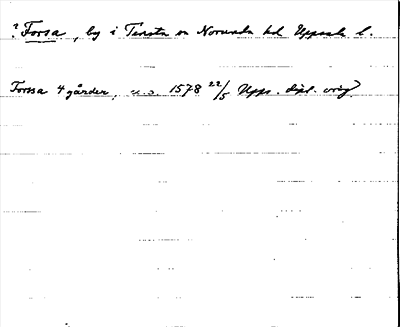 ? Forsa, by i Tensta sn Norunda hd Uppsala l.
Forssa 4 gårder, u.s. 1578 22/5 Upps. dipl. orig